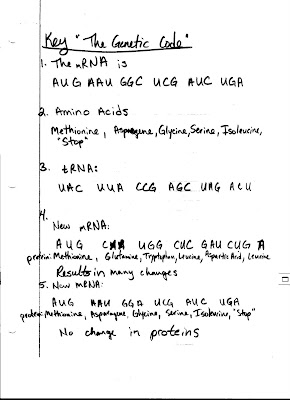 Key "The Genetic Code"
1. The mRNA is
AUG AAU GGC UCG AUC UGA
2. Amino Acids
Methionine, Asparagene, Glycine, Serine, Isoleucine,
"Stop"
3. tRNA:
UAC UUA CCG AGC UAG ACU
4.
New mRNA:
AUG CAA UGG CUC GAU CUG A
protein: Methionine, Glutamine, Tryptophan, Leucine, Aspartic Acid, Leucine
Results in many changes
5. New mRNA:
AUG AAU GGA UCG AUC UGA
protein: Methionine, Asparagene, Glycine, Serine, Isoleucine, "Stop"
No change in proteins